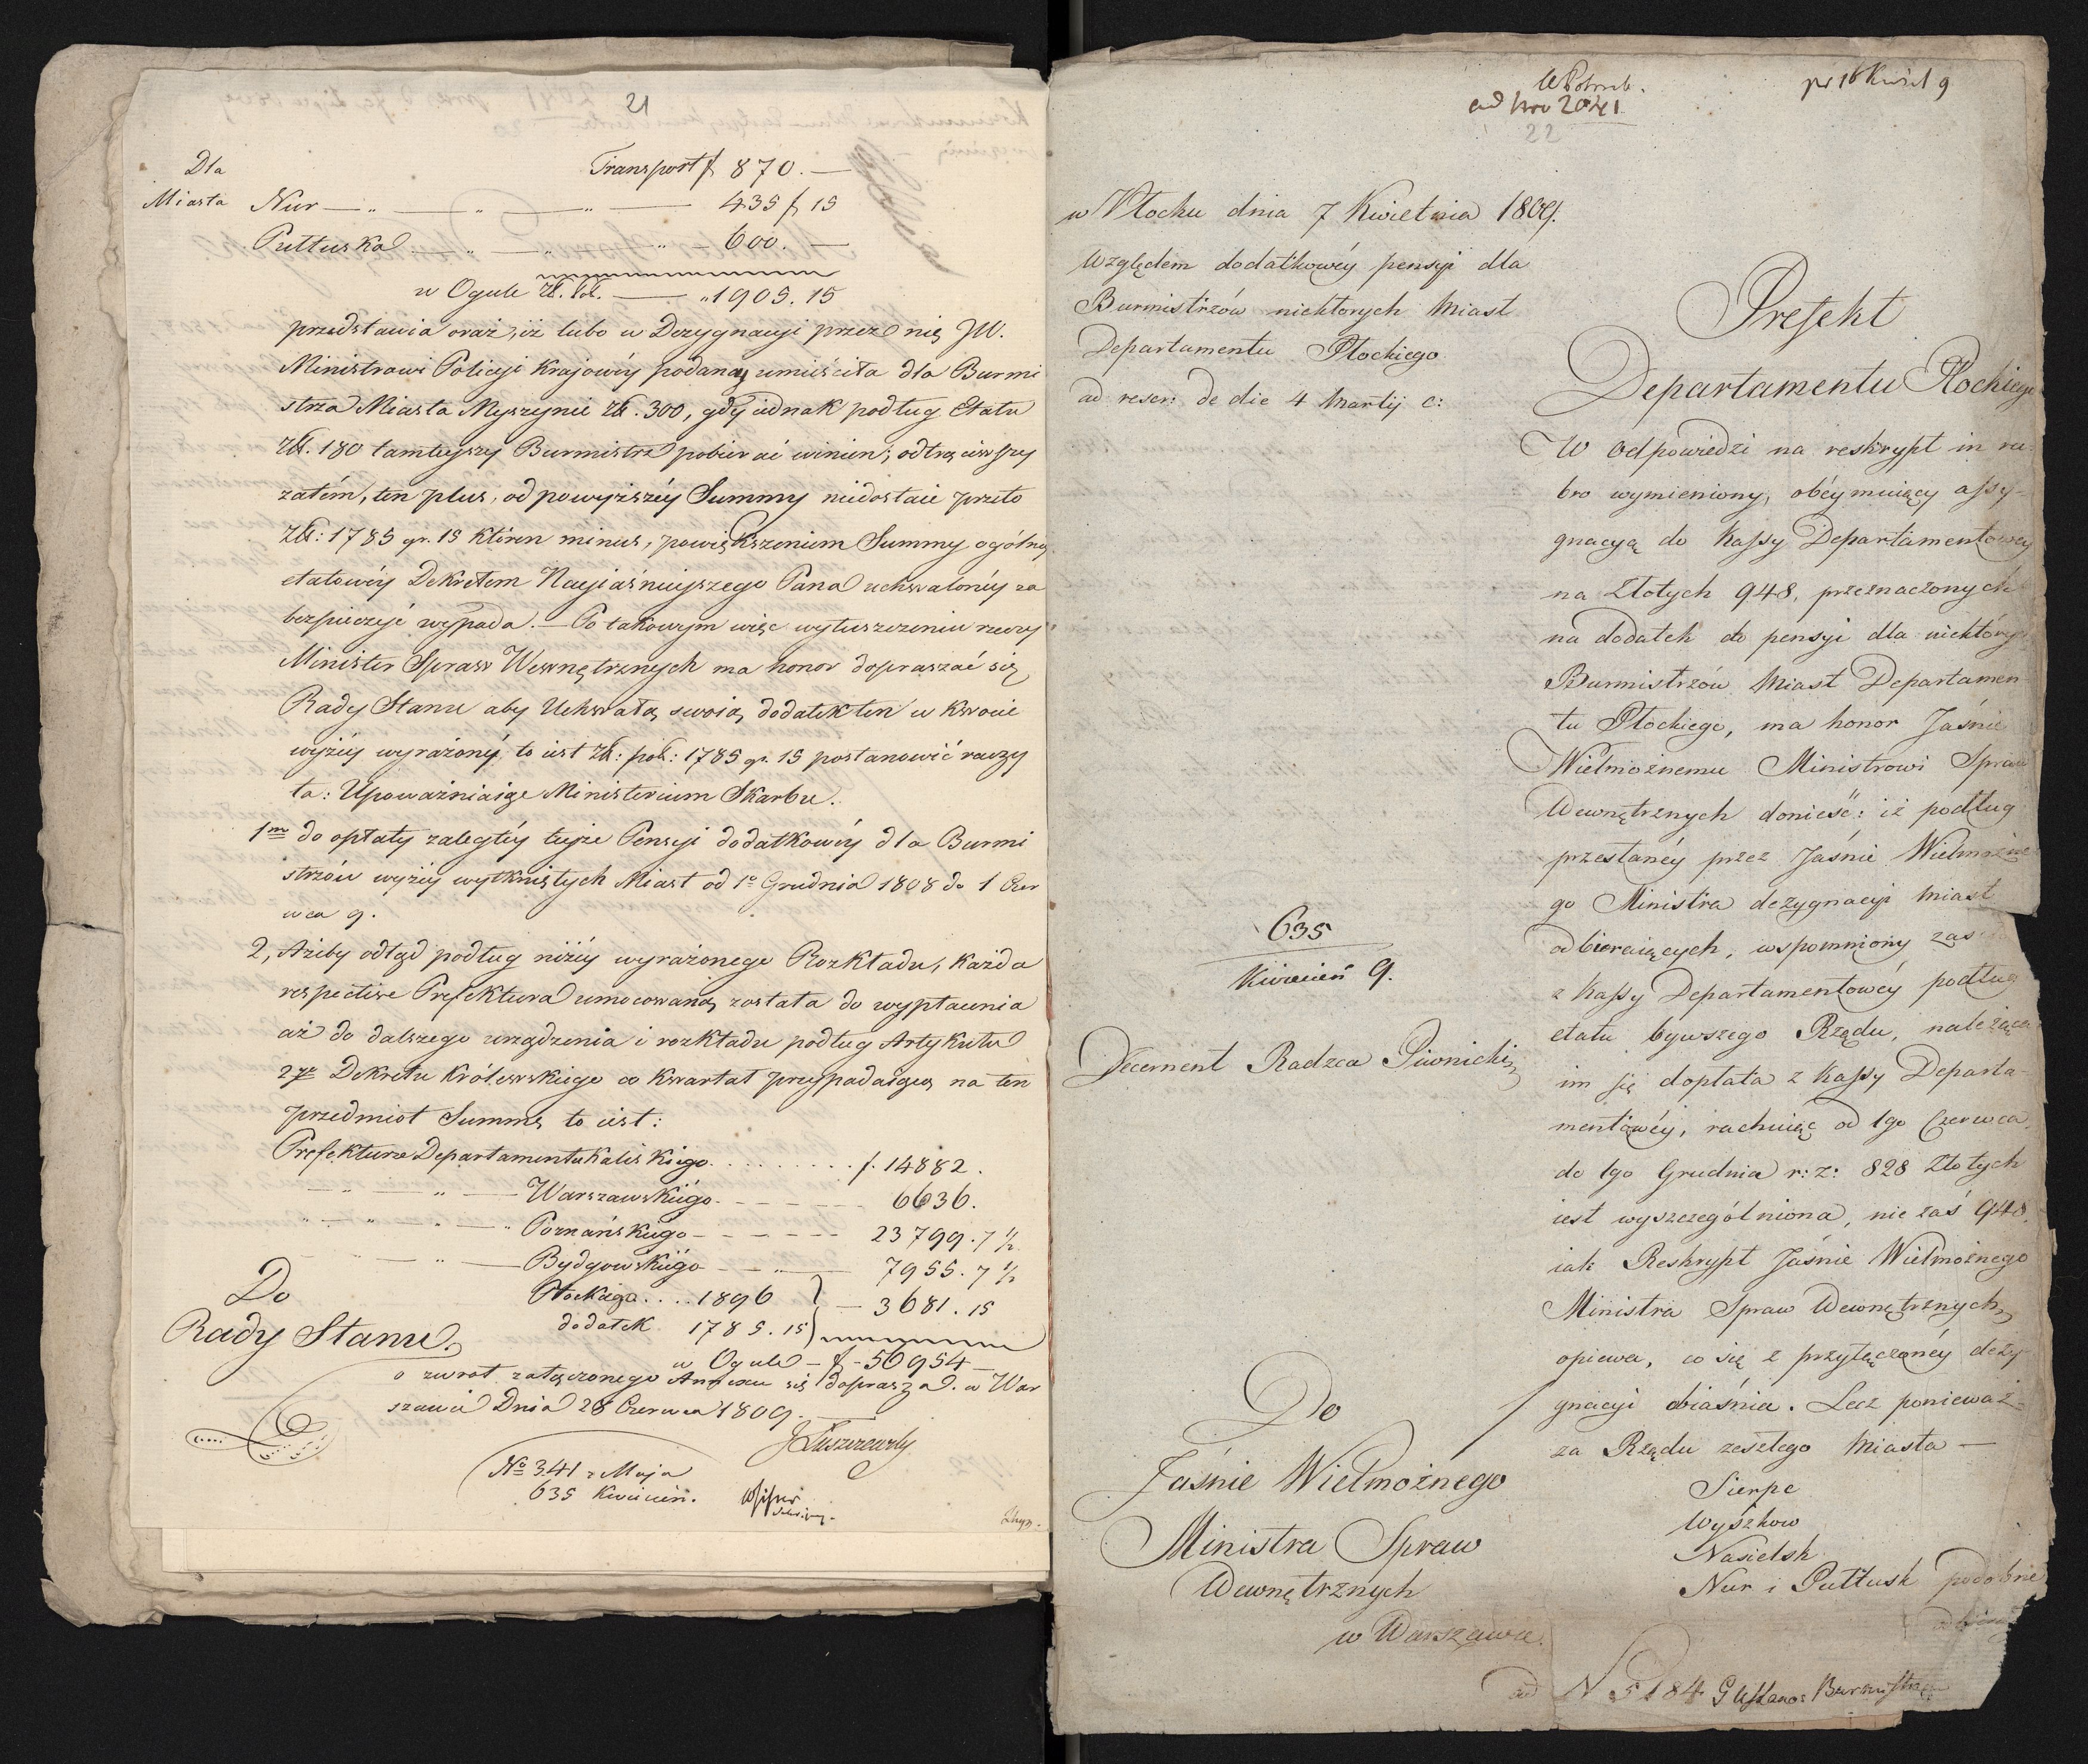 21
Dla Transport f 870. —
Miasta Nur — „ — „ — „ — 435 f 15
Pułtuska — „ — „ — „ — 600. —
w Ogule Zł. Pol. — „1905. 15
przedstawia oraz, iż lubo w Dezygnacyi przez nię JW.
Ministrowi Policyi Krajowéy podaną umieściła dla Burmi
strza Miasta Myszyniec Zł. 300, gdy iednak podług Etatu
Zł. 180 tamteyszy Burmistrz pobierać winien; odtrąciwszy
zatém, ten plus, od powyższéy Summy niedostaie przeto
Zł: 1785 gr. 15 któren minus, powiększeniem Summy ogólney
etatowéy Dekretem Nayiaśnieyszego Pana uchwalonéy za
bezpieczyć wypada. — Po takowym więc wyłuszczeniu rzeczy
Minister Spraw Wewnętrznych ma honor dopraszać się
Rady Stanu aby Uchwałą swoią dodatek ten w kwocie
wyżéy wyrażony to iest Zł: pol: 1785 gr. 15 postanowić raczy
ła: Upoważniaiąc Ministerium Skarbu.
1mo do opłaty zaległéy teyże Pensyi dodatkowéy dla Burmi
strzów wyżéy wytkniętych Miast od 1o Grudnia 1808 do 1 Czer
wca 9.
2, Ażeby odtąd podług niżéy wyrażonego Rozkładu, każda
respective Prefektura umocowaną została do wypłacenia
aż do dalszego urządzenia i rozkładu podług Artykułu
27o Dekretu Królewskiego co kwartał przypadaiącą na ten
przedmiot Summę to iest:
Prefekturze Departamentu Kaliskiego . . . . . . . . f. 14882.
— „ — „ — Warszawskiego - - - - - - 6636.
„ — „ — „ — „ Poznańskiego - - - - - - 23799. 7 1/2
— „ — „ — Bydgowskiego — „ — 7955. 7 1/2
Do Płockiego . . . . 1896 } — 3681. 15
Rady Stanu dodatek 1785. 15
w Ogule — f - 56954 —
o zwrot załączonego Annexu się doprasza. w War
szawie Dnia 28 Czerwca 1809.
J Łuszczewski
No 341 z Maja
635 Kwiecień.
ad Nro 2041
22
pr 16 Kwiet 9
w Płocku dnia 7 Kwietnia 1809.
Względem dodatkowéy pensyi dla
Burmistrzów niektorych Miast
Departamentu Płockiego
ad rescr: de die 4 Martij c:
635
Kwiecień 9.
Decernent Radzca Piwnicki
Do
Jaśnie Wielmożnego
Ministra Spraw
Wewnętrznych
w Warszawie.
Prefekt
Departamentu Płockiego
W odpowiedzi na reskrypt in ru-
bro wymieniony, obéymuiący assy-
gnacyą do Kassy Departamentowey
na Złotych 948, przeznaczonych
na dodatek do pensyi dla niektóry
Burmistrzów Miast Departamen
tu Płockiego, ma honor Jaśnie
Wielmożnemu Ministrowi Spraw
Wewnętrznych donieść: iż podług
przesłanéy przez Jaśnie Wielmożne
go Ministra dezygnacyi Miast
odbieraiących, wspomniony
z Kassy Departamentowéy podług
etatu bywszego Rządu, należąca
im się dopłata z Kassy Departa-
mentowéy, rachuiąc od 1go Czerwca
do 1go Grudnia r: z: 828 Złotych
iest wyszczególniona, nie zaś 948,
iak Reskrypt Jaśnie Wielmożnego
Ministra Spraw Wewnętrznych
opiewa, co się z przyłączonéy dezy
gnacyi obiaśnia. Lecz ponieważ
za Rządu zeszłego Miasta —
Sierpc
Wyszkow
Nasielsk
Nur i Pułtusk podobnie
ad N 5184